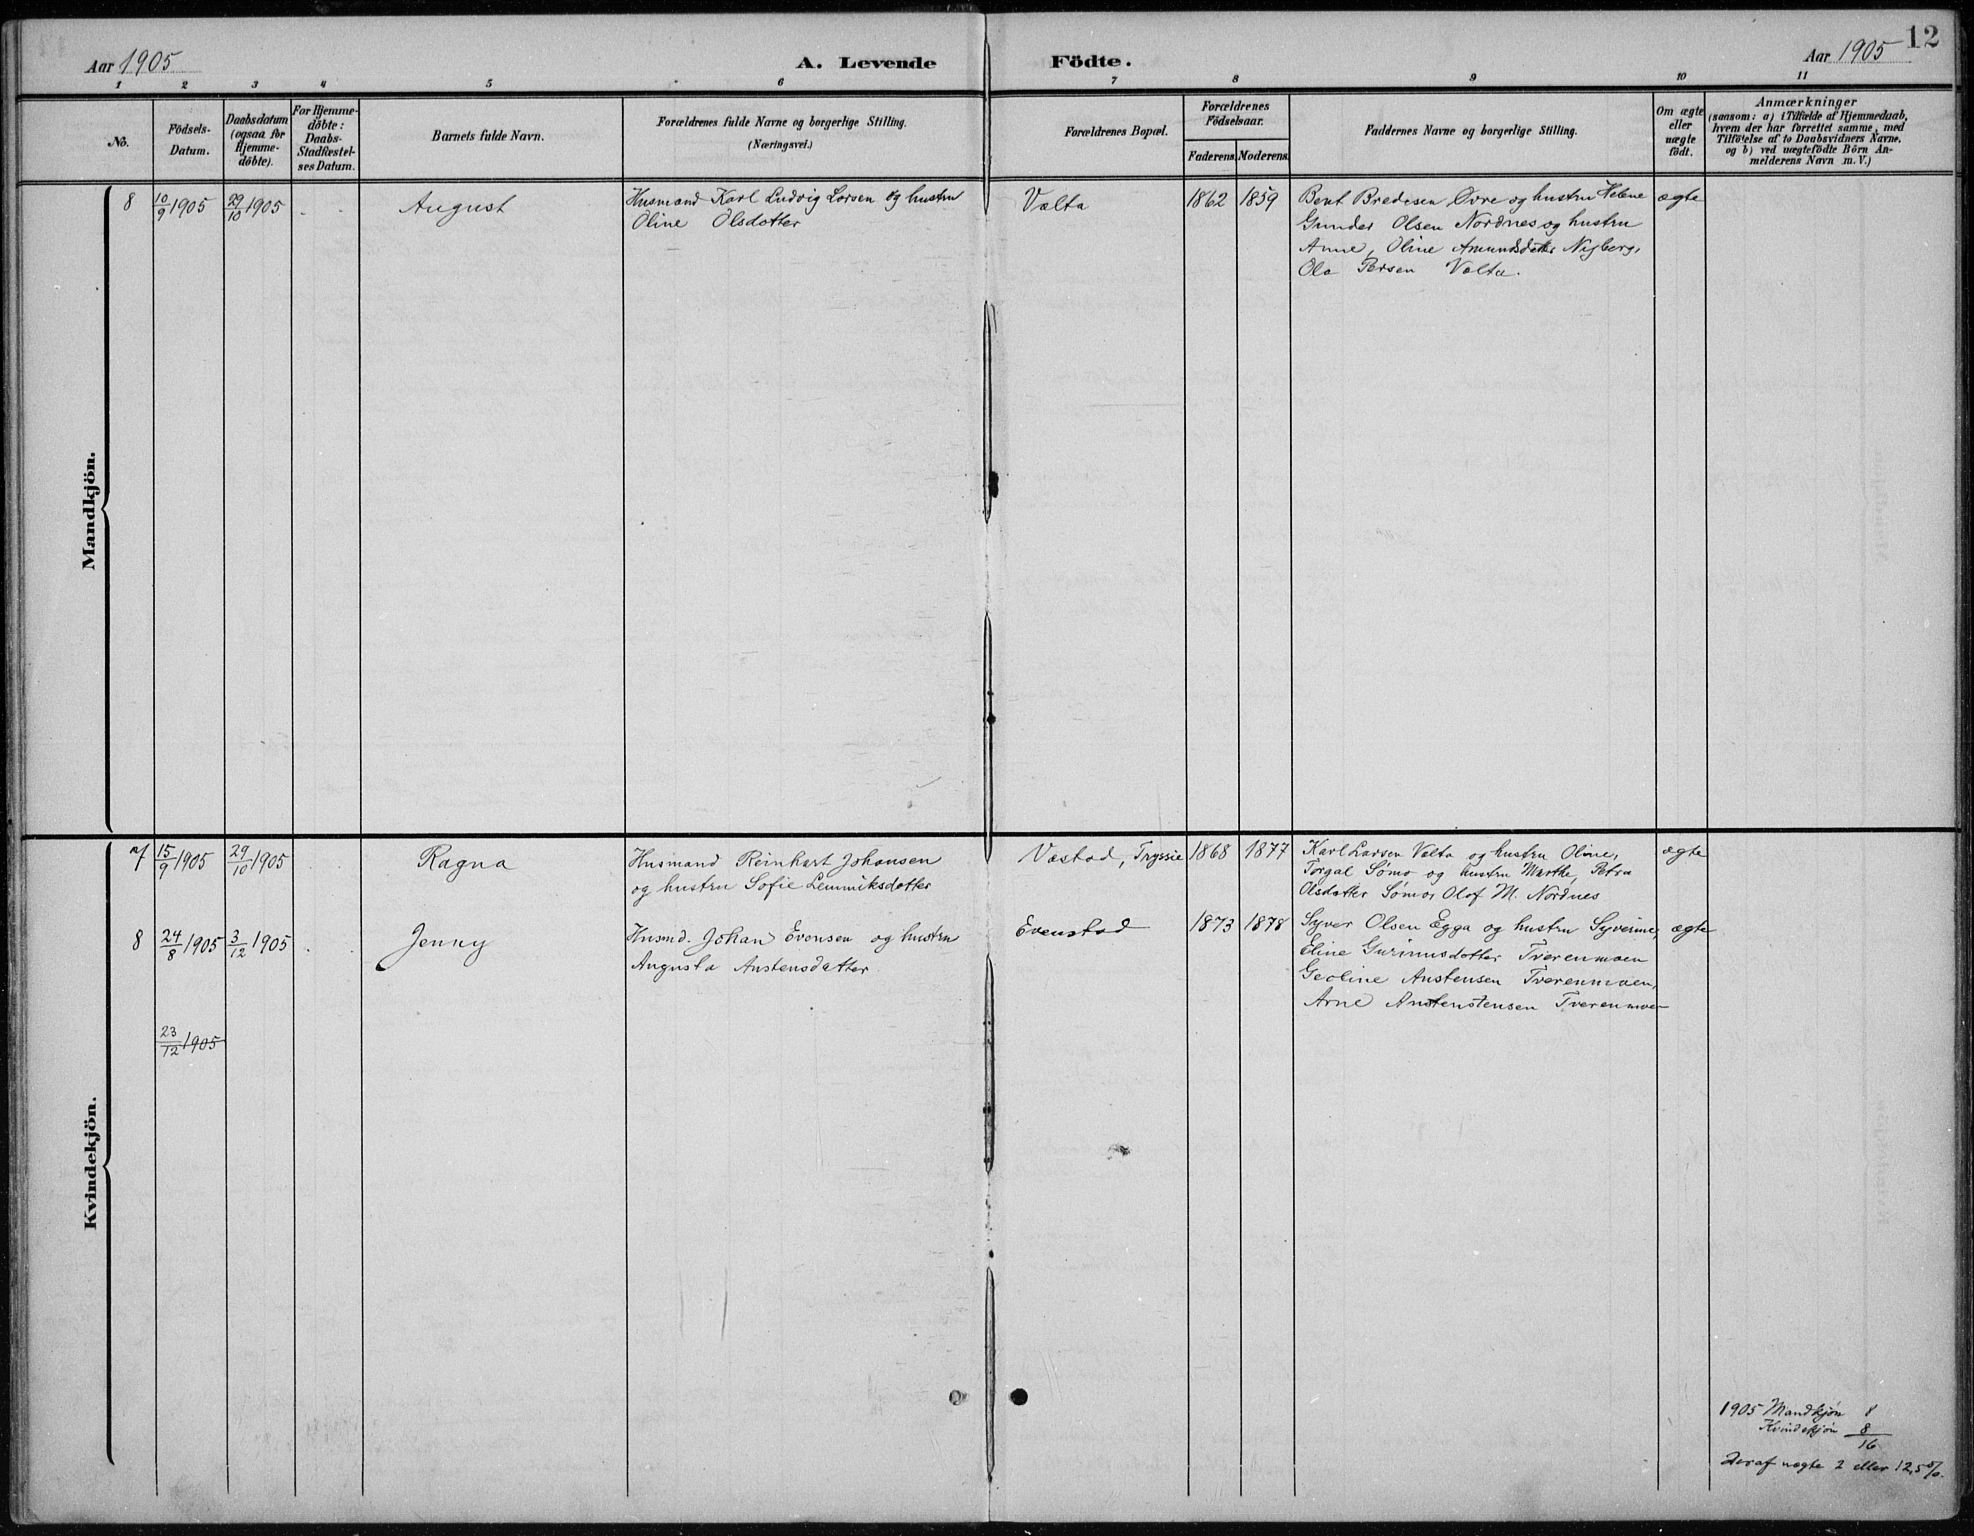 Aar 1905
A. Levende Födte.
Aar 1905
12
1 2 3 4 5 6 7 8 9 10 11
No.
Födsels-
Datum.
Daabsdatum
(ogsaa for
Hjemme-
döbte).
For Hjemme-
döbte:
Daabs-
Stadfæstel-
ses Datum.
Barnets fulde Navn.
Forældrenes fulde Navne og borgerlige Stilling.
(Næringsvei.)
Forældrenes Bopæl.
Forældrenes
Födselsaar.
Faderens.
Moderens.
Faddernes Navne og borgerlige Stilling.
Om ægte
eller
uægte
födt.
Anmærkninger
(saasom: a) i Tilfælde af Hjemmedaab,
hvem der har forrettet samme, med
Tilföielse af to Daabsvidners Navne.
og b) ved uægtefödte Börn An-
melderens Navn m. V.)
Mandkjön.
8
10/9 1905
29/10 1905
August
Husmand Karl Ludvig Larsen og hustru
Oline Olsdatter
Valta
1862
1859
Bent Bredesen Øvre og hustru Helene
Gunder Olsen Nordnes og hustru
Anne, Oline Amundsdatter Nyberg,
Ola Persen Valta.
ægte
Kvindekjön.
7
15/9 1905
29/10 1905
Ragna
Husmand Reinhart Johansen
og hustru Sofie Lemmiksdatter
Vestad, Trysil
1868
1877
Karl Larsen Valta og hustru Oline,
Torgal Sømo og hustru Marthe, Petra
Olsdatter Sømo, Olof M. Nordnes
ægte
8
24/8 1905
3/12 1905
Jenny
Husmd. Johan Evensen og hustru
Augusta Austensdatter.
Evenstad
1873
1878
Syver Olsen Egga og hustru Syverine,
Eline Gurinusdotter Tverenmoen
Geoline Austensen Tverenmoen,
Arne Anstenstensen Tverenmoen
ægte
23/12 1905
1905 Mandkjøn 8
Kvindekjøn 8
16
Deraf uægte 2 eller 12,5%.